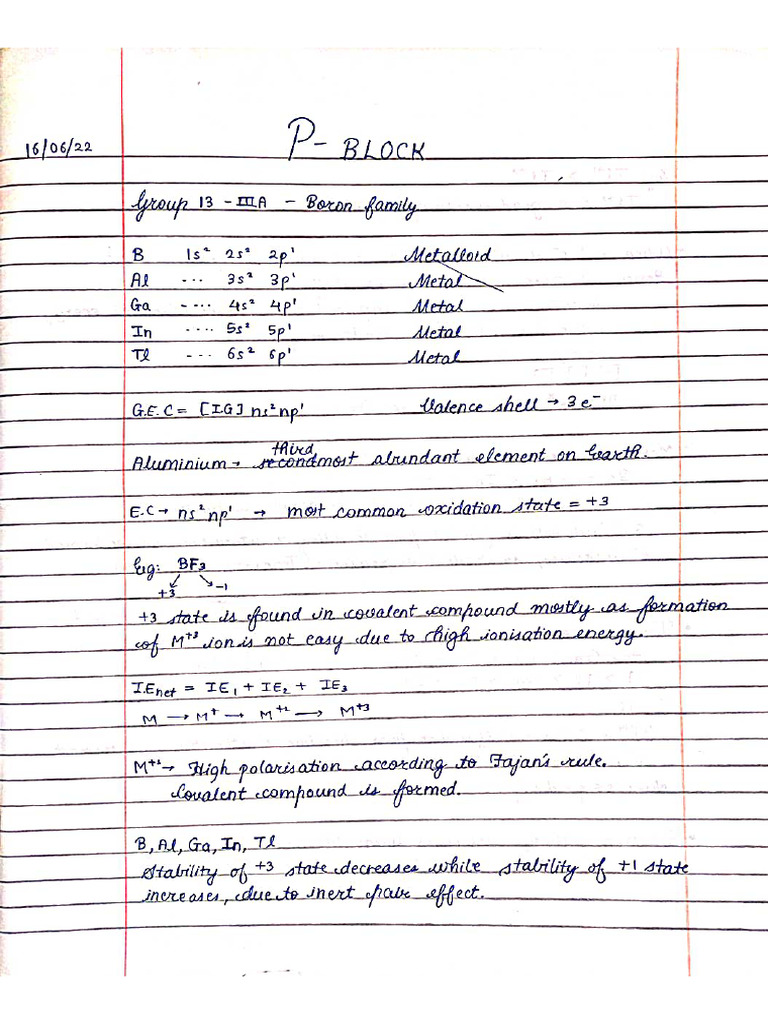 16/06/22
P-BLOCK
Group 13 - IIIA - Boron family
B 1s² 2s² 2p¹ Metalloid
Al ... 3s² 3p¹ Metal
Ga .... 4s² 4p¹ Metal
In .... 5s² 5p¹ Metal
Tl ... 6s² 6p¹ Metal
G.E.C = [I.G] ns²np¹ Valence shell → 3e⁻
third
Aluminium → secondmost abundant element on Earth.
E.C → ns²np¹ → most common oxidation state = +3
Eg: BF₃
+3 -1
+3 state is found in covalent compound mostly as formation
of M⁺³ ion is not easy due to high ionisation energy.
I.Enet = IE₁ + IE₂ + IE₃
M → M⁺ → M⁺² → M⁺³
M⁺³ → High polarisation according to Fajan's rule.
Covalent compound is formed.
B, Al, Ga, In, Tl
Stability of +3 state decreases while stability of +1 state
increases, due to inert pair effect.